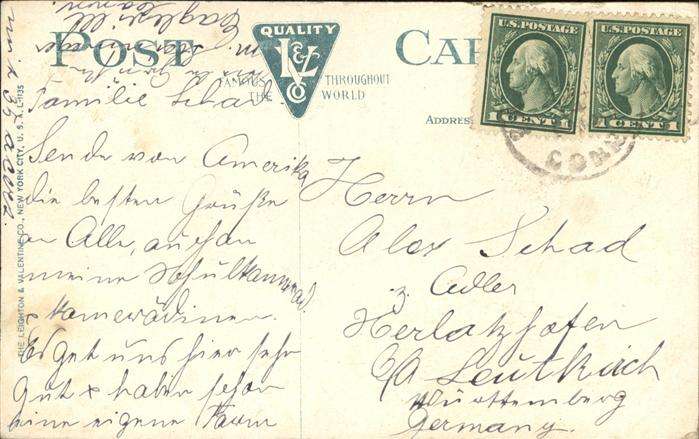 POST CARD
QUALITY
L&V
CO
FAMOUS THROUGHOUT
THE WORLD
ADDRESS
U.S. POSTAGE
1 CENT 1
U.S. POSTAGE
1 CENT 1
CONN
THE LEIGHTON & VALENTINE CO., NEW YORK CITY, U. S. A. L-1135
Familie Schad.
Sende von Amerika
die besten Grüße
an Alle, auch an
meine Schulkamerad.
& Kamerädinen.
Es get uns hier sehr
gut & haben schon
eine eigene Farm
mit 35 acker.
Eagleville
Conn.
Herrn
Alex Schad
z. Adler
Herlatzhofen
O/A Leutkirch
Württemberg
Germany.